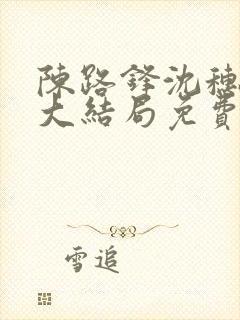 陳路鋒沈穗
大結局免費
雪追